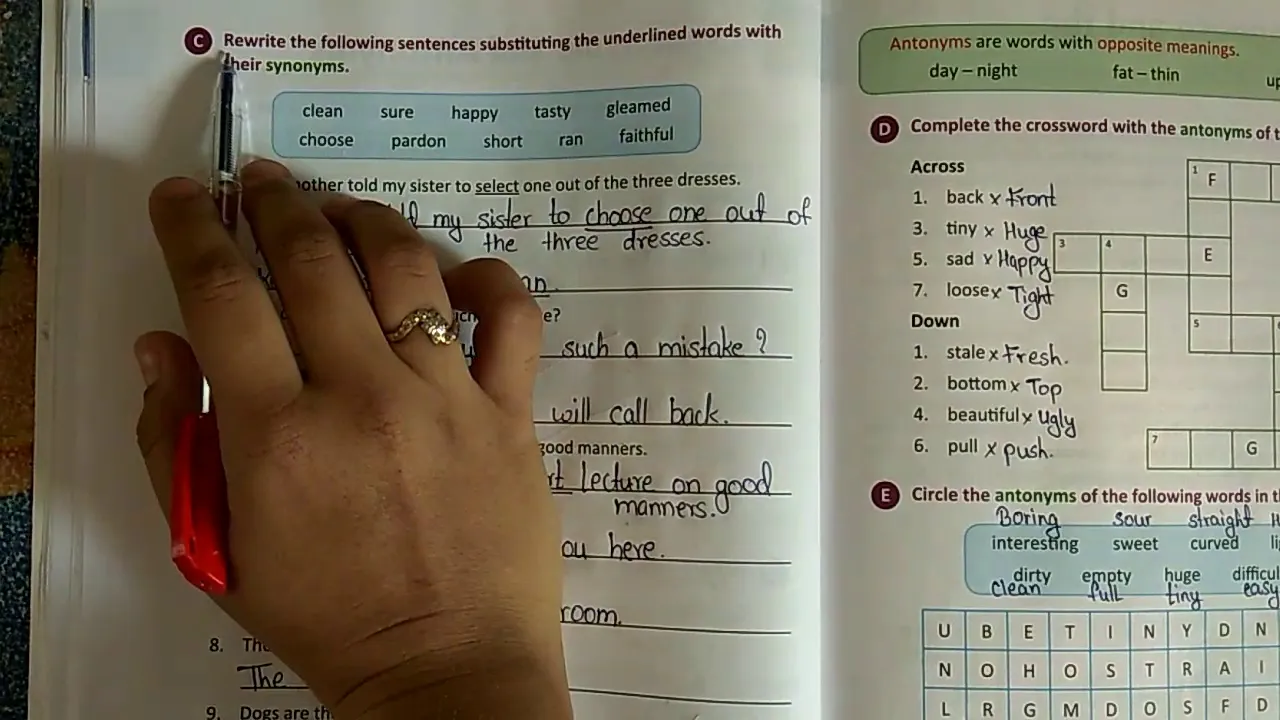 C Rewrite the following sentences substituting the underlined words with
their synonyms.
clean sure happy tasty gleamed
choose pardon short ran faithful
other told my sister to select one out of the three dresses.
my sister to choose one out of
the three dresses.
e?
such a mistake ?
will call back.
good manners.
lecture on good
manners.
here.
room.
8. The
The
9. Dogs are
Antonyms are words with opposite meanings.
day – night fat – thin up
D Complete the crossword with the antonyms of
Across
1. back x Front
3. tiny x Huge
5. sad x Happy
7. loose x Tight
Down
1. stale x Fresh.
2. bottom x Top
4. beautiful x Ugly
6. pull x push.
1 F
3 4 E
G
5
7 G
E Circle the antonyms of the following words in
Boring sour straight
interesting sweet curved
dirty empty huge
clean full tiny easy
U B E T I N Y D N
N O H O S T R A I
L R G M D O S F D